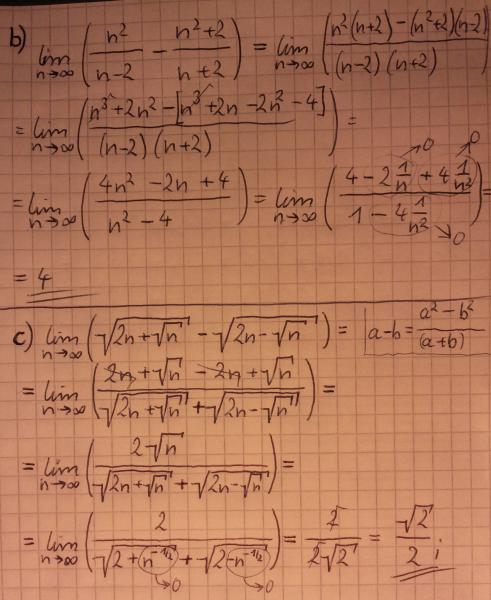 b) lim n→∞ (n²/(n-2) − (n²+2)/(n+2)) = lim n→∞ ((n²(n+2) − (n²+2)(n-2))/((n-2)(n+2)))
= lim n→∞ ((n³+2n² − [n³+2n−2n²−4])/((n-2)(n+2))) =
= lim n→∞ ((4n² −2n +4)/(n² − 4)) = lim n→∞ ((4 − 2 1/n + 4 1/n²)/(1 − 4 1/n²)) = →0 →0 →0
= 4
c) lim n→∞ (√(2n+√n) − √(2n−√n)) = | a-b = (a²−b²)/(a+b)
= lim n→∞ ((2n+√n −2n+√n)/(√(2n+√n) + √(2n−√n))) =
= lim n→∞ (2√n/(√(2n+√n) + √(2n−√n))) =
= lim n→∞ (2/(√(2+n^(-1/2)) + √(2−n^(-1/2)))) = 2/(2√2) = √2/2 ; →0 →0